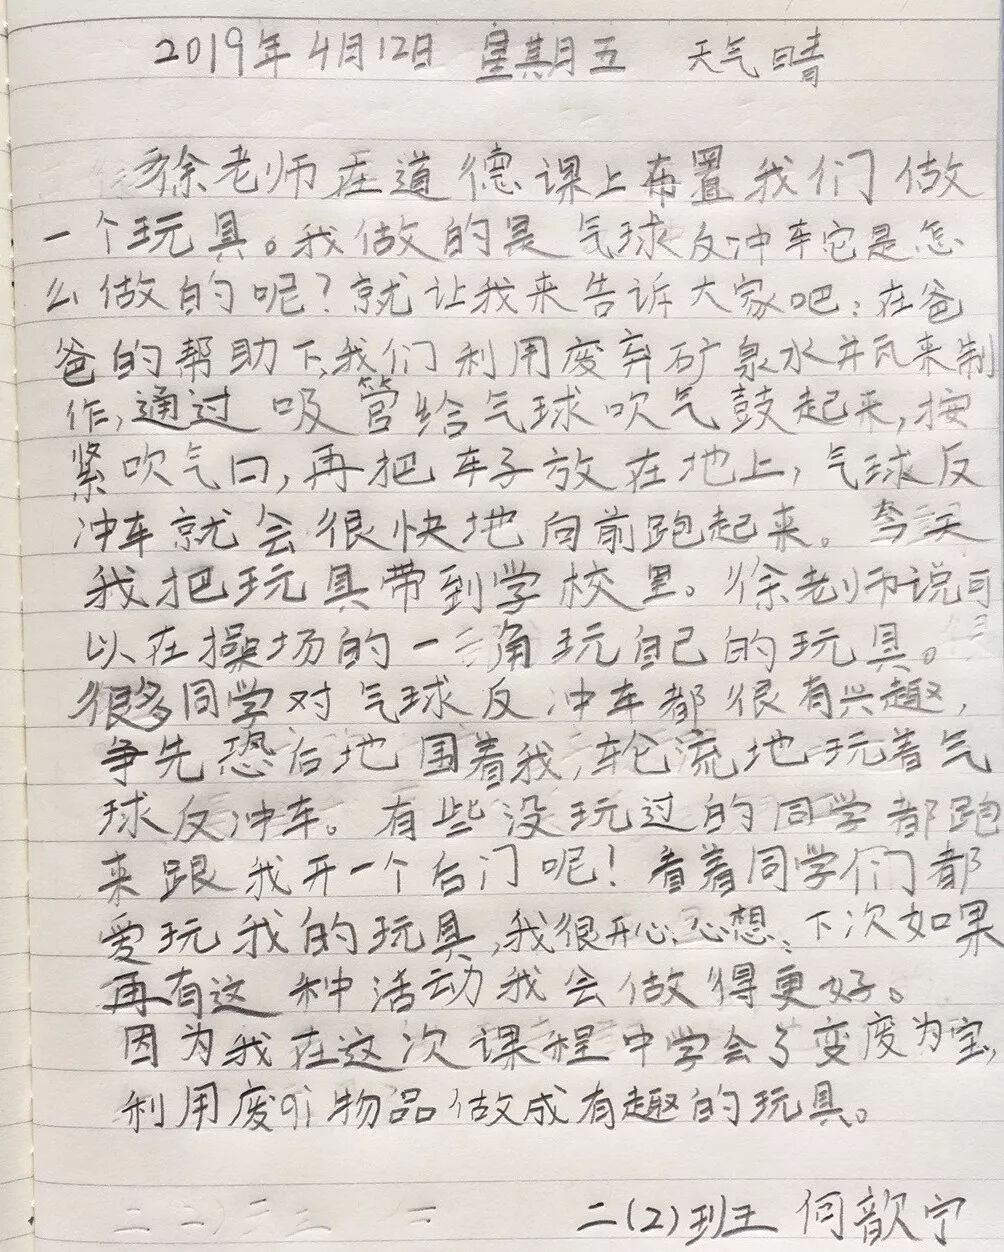 2019年4月12日 星期五 天气晴
徐老师在道德课上布置我们做
一个玩具。我做的是气球反冲车它是怎
么做的呢?就让我来告诉大家吧:在爸
爸的帮助下,我们利用废弃矿泉水并瓦来制
作,通过吸管给气球吹气鼓起来,按
紧吹气口,再把车子放在地上,气球反
冲车就会很快地向前跑起来。今天
我把玩具带到学校里。徐老师说可
以在操场的一角玩自己的玩具。
很多同学对气球反冲车都很有兴趣,
争先恐后地围着我,轮流地玩着气
球反冲车。有些没玩过的同学都跑
来跟我开一个后门呢!看着同学们都
爱玩我的玩具,我很开心,心想:下次如果
再有这种活动我会做得更好。
因为我在这次课程中学会了变废为宝,
利用废物品做成有趣的玩具。
二(2)班 何歆宁